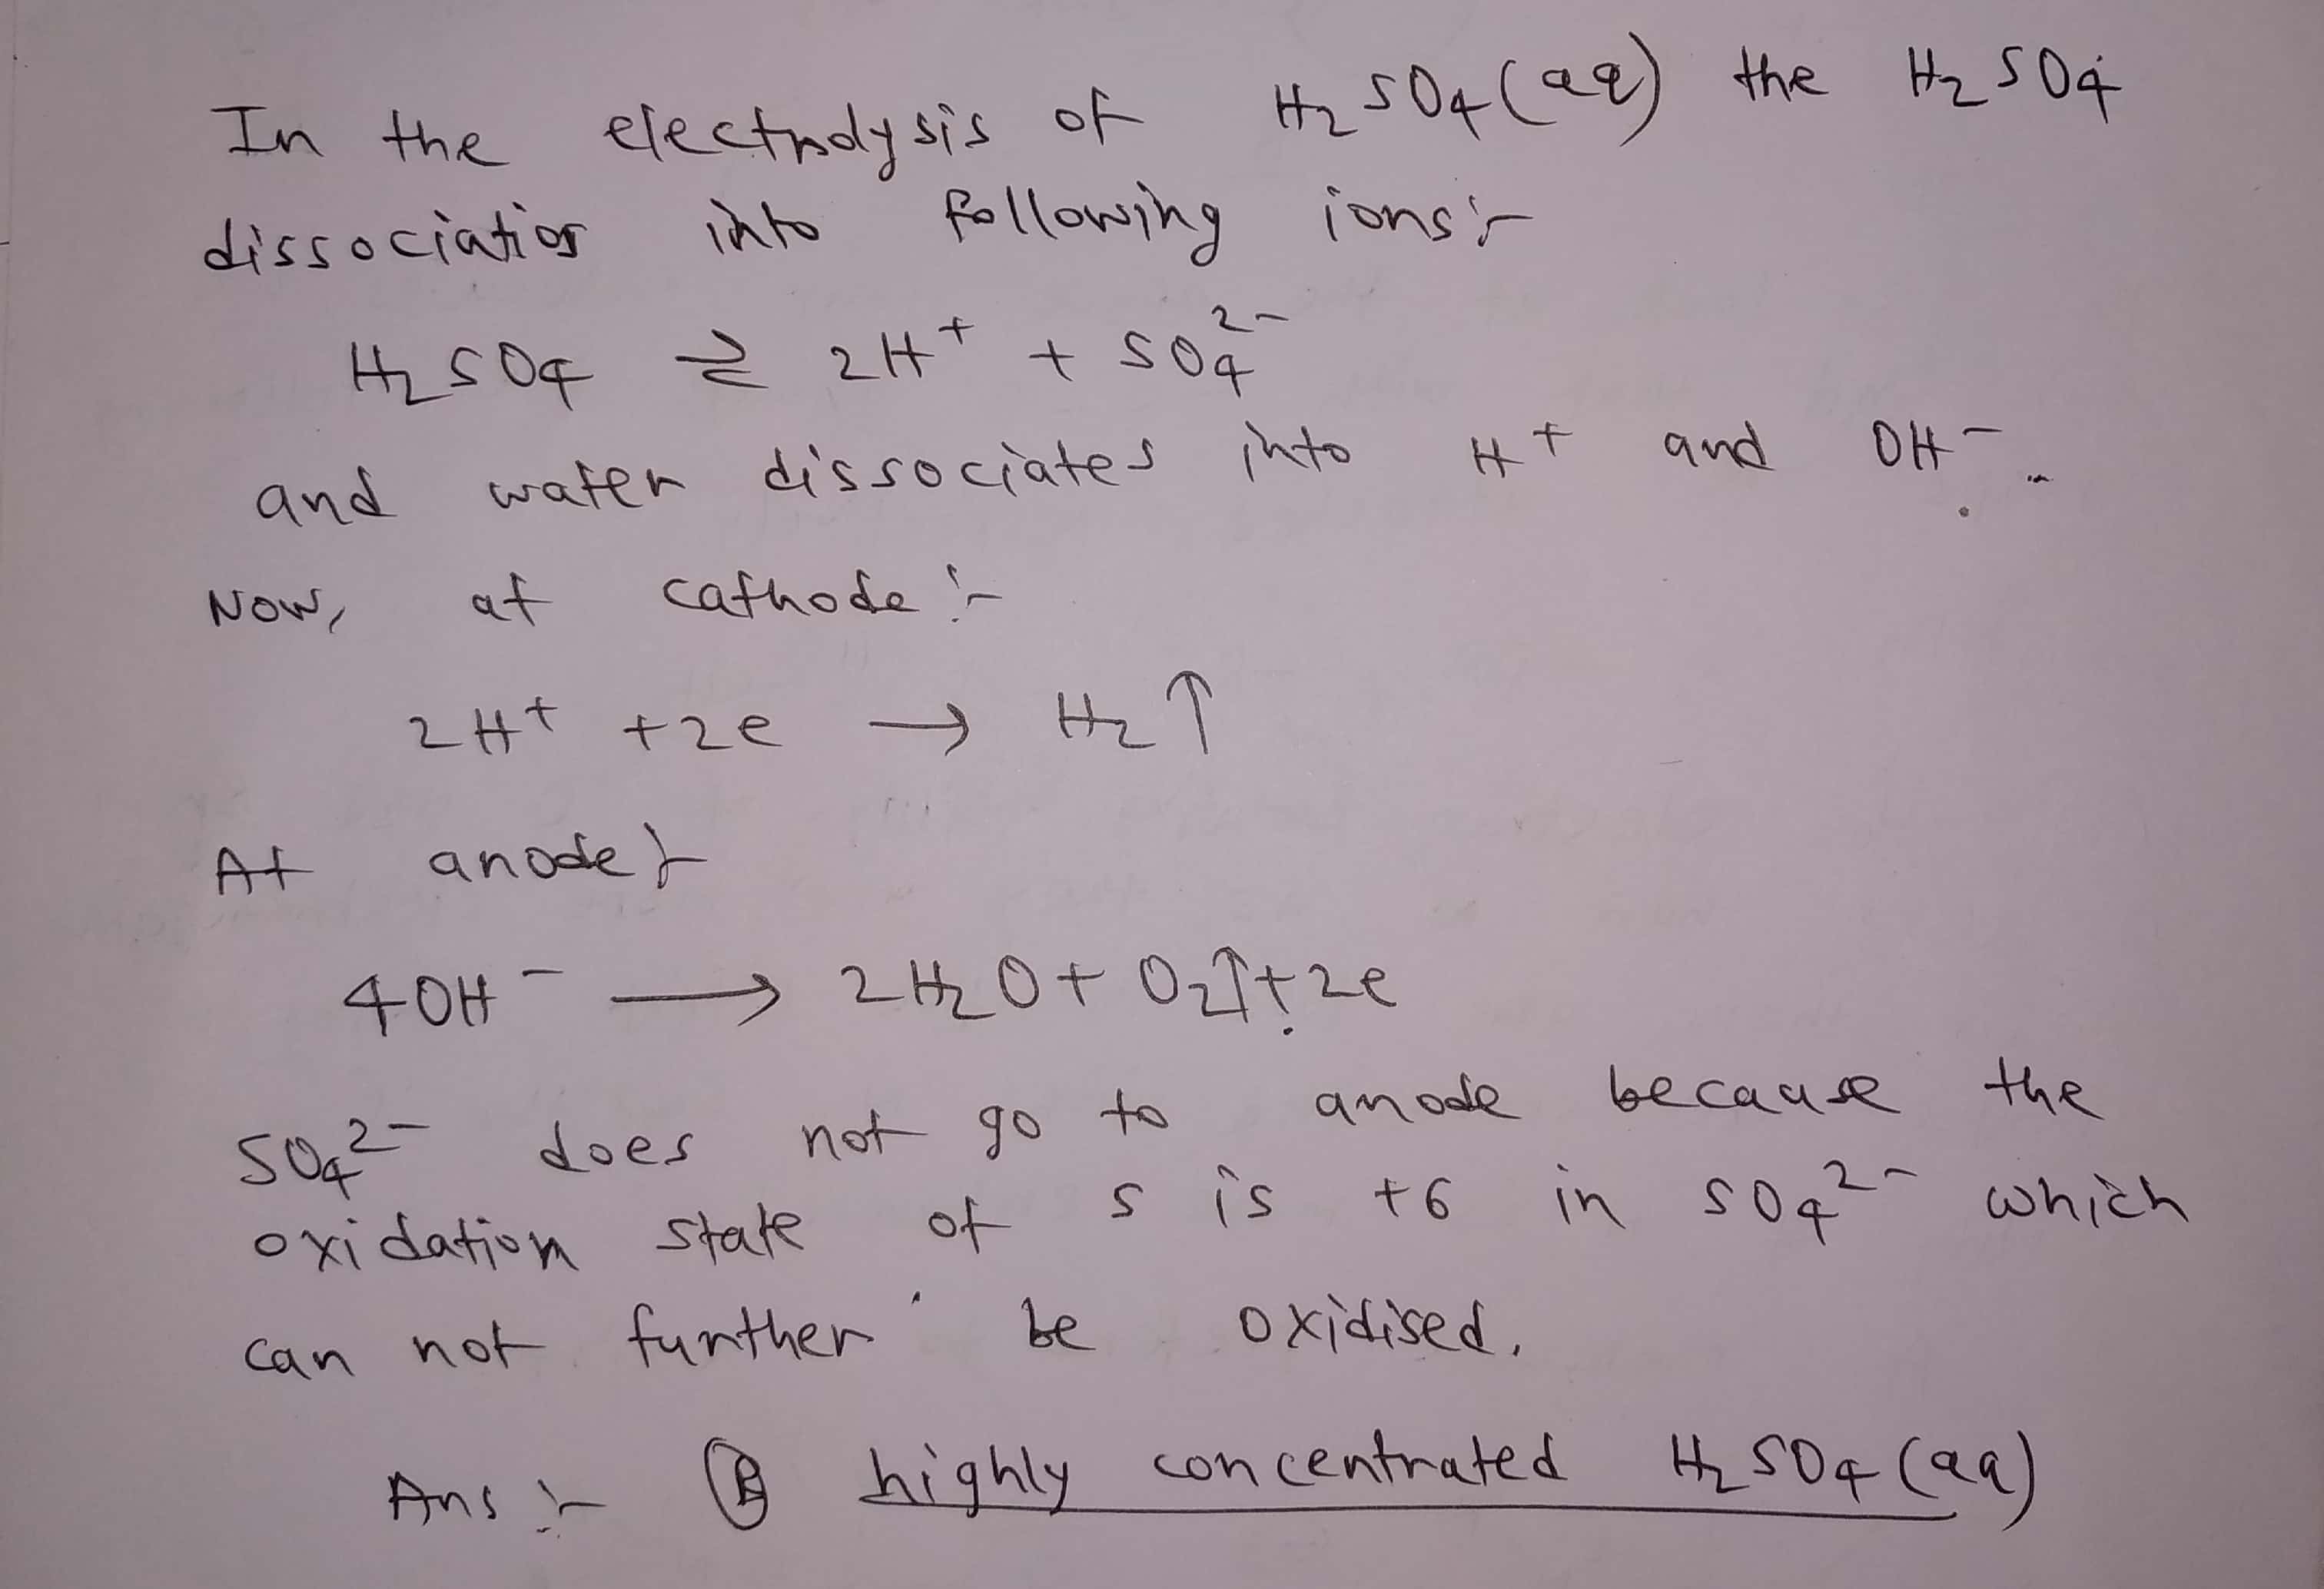 In the electrolysis of H₂SO₄(aq) the H₂SO₄
dissociatior into following ions:-
H₂SO₄ ⇌ 2H⁺ + SO₄²⁻
and water dissociates into H⁺ and OH⁻.
Now, at cathode:-
2H⁺ + 2e → H₂↑
At anode:-
4OH⁻ → 2H₂O + O₂↑ + 2e
SO₄²⁻ does not go to anode because the
oxidation state of S is +6 in SO₄²⁻ which
can not further be oxidised.
Ans:- Ⓑ highly concentrated H₂SO₄(aq)